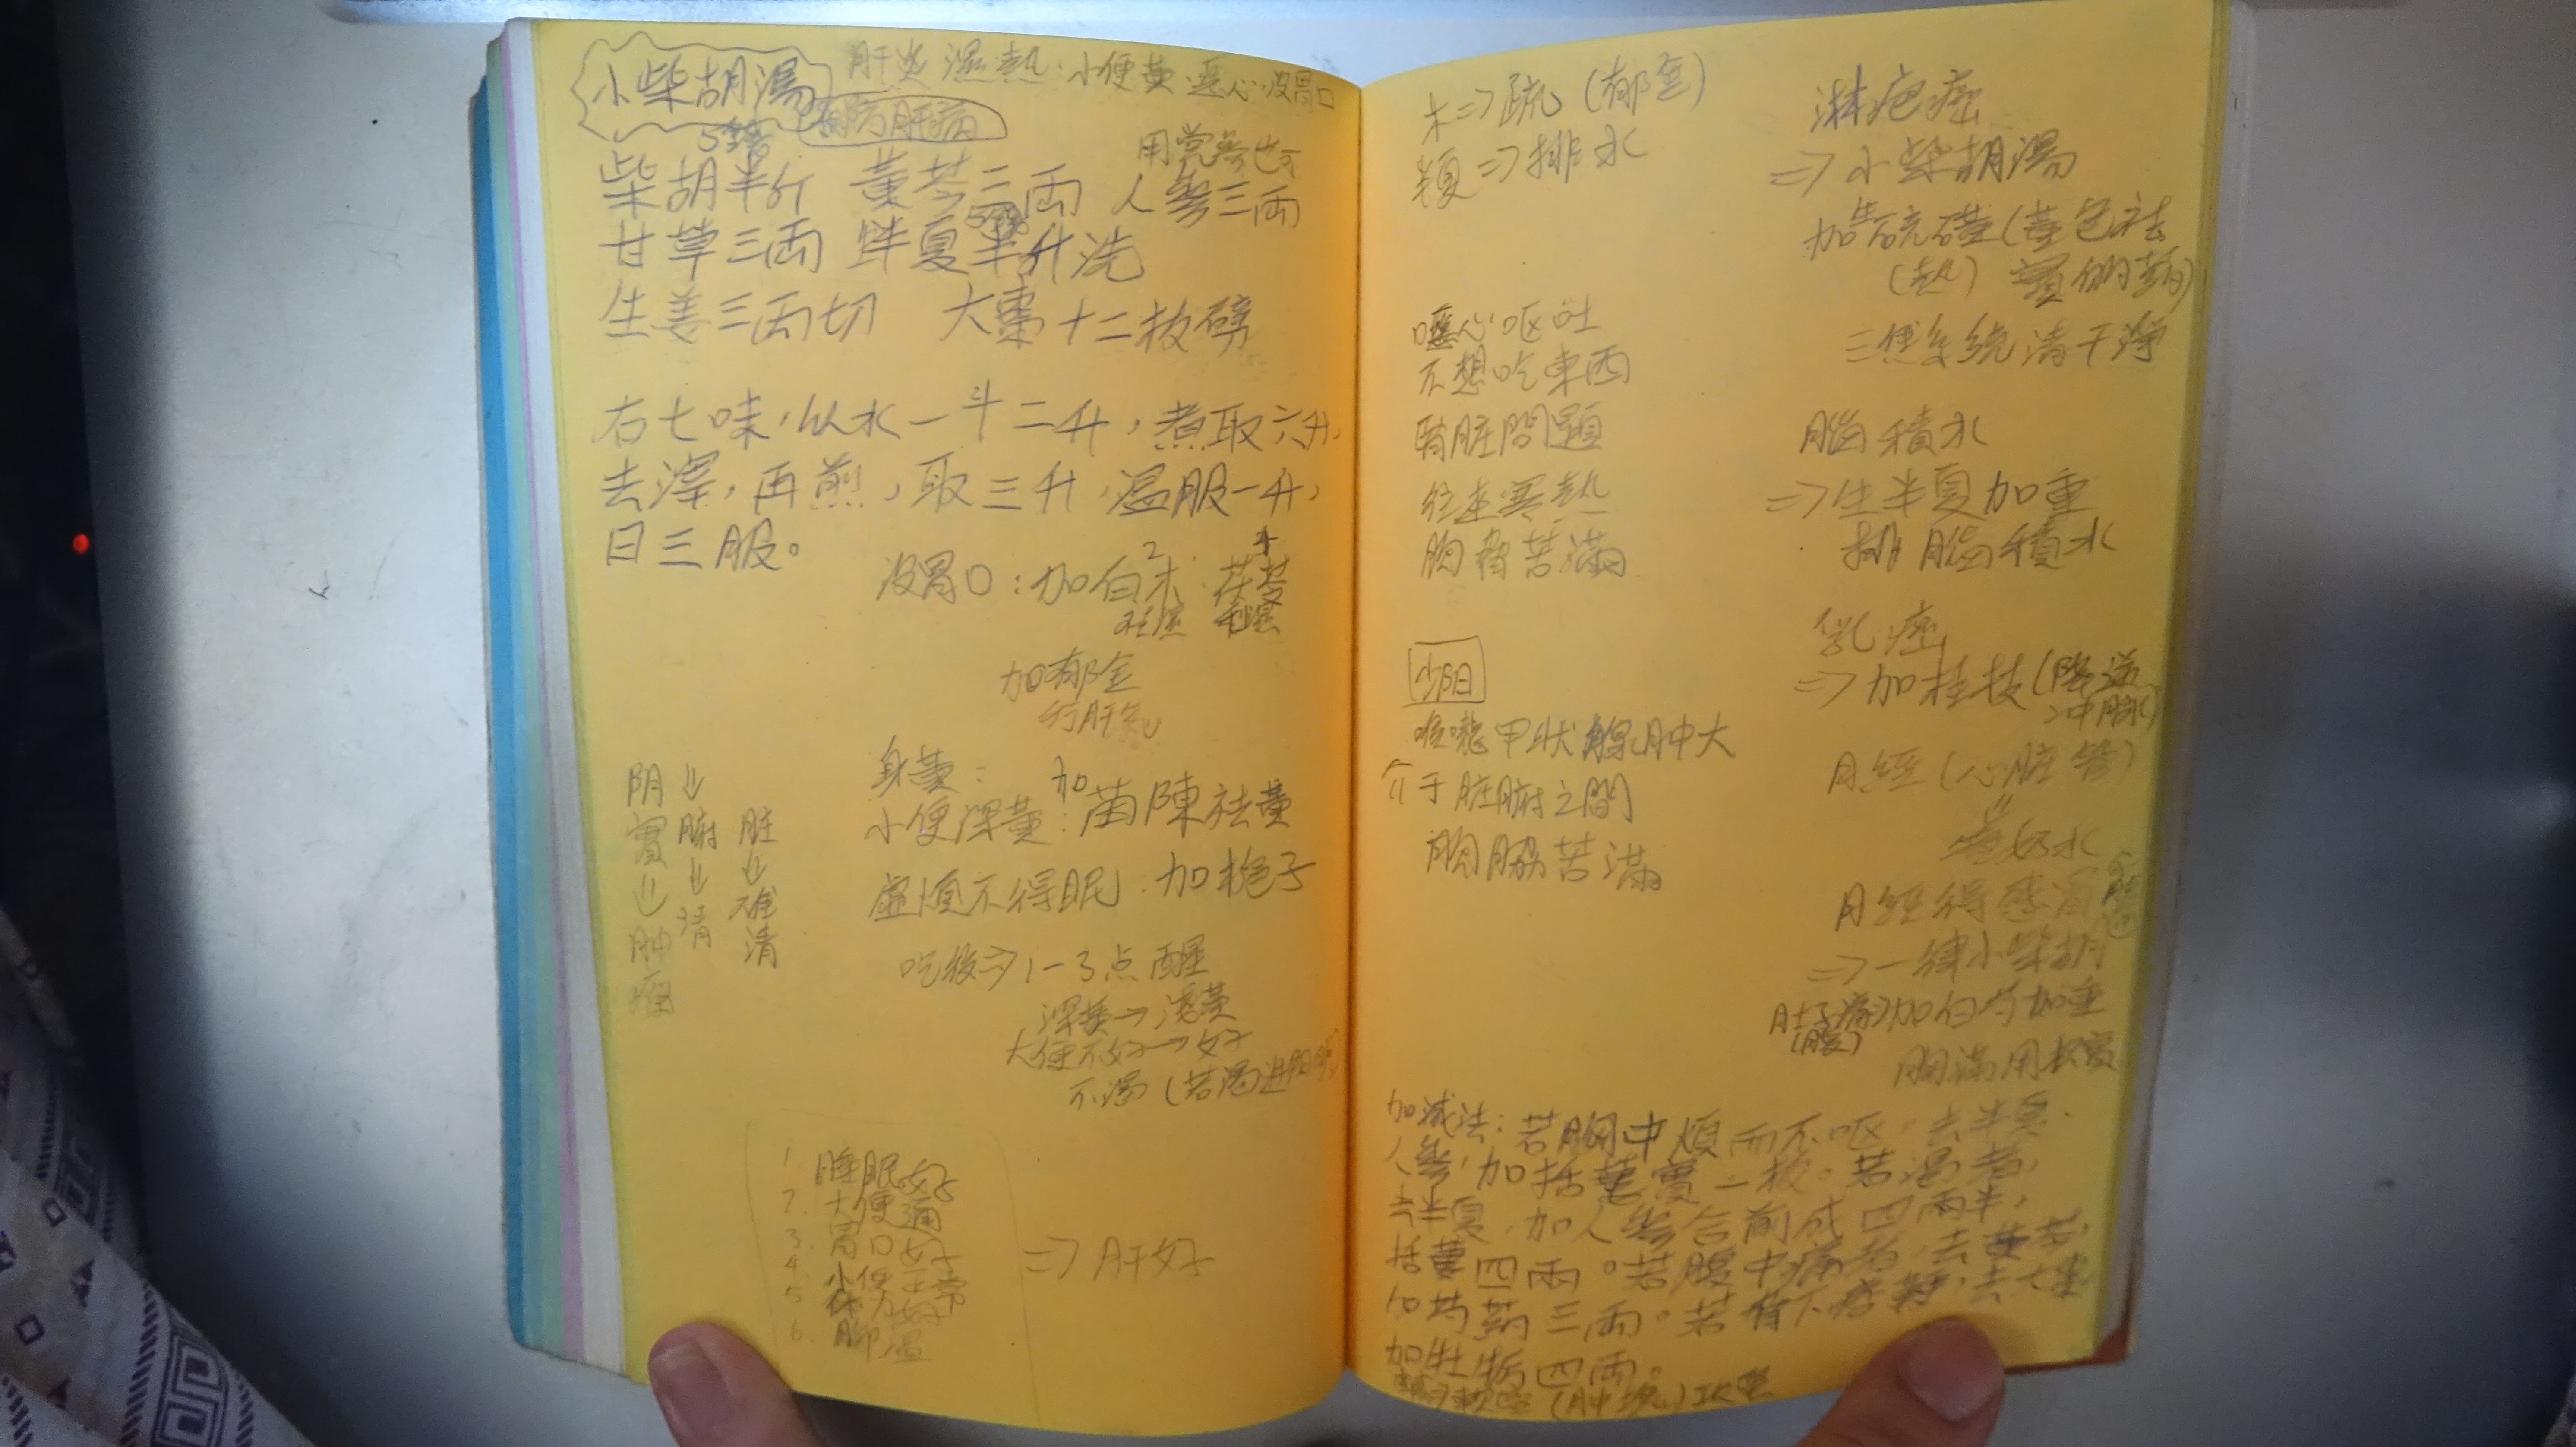 小柴胡湯
肝炎 濕熱:小便黃 噁心 沒胃口
預防肝病
5錢
用党參也可
柴胡半斤 黃芩三兩 人參三兩
甘草三兩 半夏半升洗
生姜三兩切 大棗十二枚擘
右七味,以水一斗二升,煮取六升,
去滓,再煎,取三升,溫服一升,
日三服。
沒胃口:加白朮 茯苓
2 4
祛濕 利濕
加郁金
行肝氣
身黃:
小便深黃:加茵陳祛黃
虛煩不得眠:加梔子
吃後⇒1-3点醒
深黃→淺黃
大便不好→好
不渴(若渴進陽明)
阴實⇒肿瘤
⇒腑⇒清
脏⇒难清
1. 睡眠好
2. 大便通
3. 胃口好
4. 小便正常
5. 体力好
6. 脚溫
⇒肝好
木⇒疏(郁金)
⇒排水
噁心呕吐
不想吃東西
腎脏問題
往來寒熱
胸脅苦滿
少阳
咳嗽 甲狀腺肿大
介于脏腑之間
胸脇苦滿
淋疤癌
⇒小柴胡湯
加生硫磺(黃色祛
(熱)
三焦系統清干淨
脑積水
⇒生半夏加重
排脑積水
乳癌
⇒加桂枝(降逆
冲脉)
月經(心脏管)
月經得感冒
⇒一律小柴胡
肚子痛加白芍加重
(腹)
胸滿用枳實
加減法:若胸中煩而不呕,去半夏.
人參,加括蔞實一枚.若渴者,
去半夏,加人參合前成四兩半,
括蔞四兩。若腹中痛者,去黃芩,
加芍葯三兩。若脅下痞鞕,去大棗
加牡蛎四兩。
(肿塊)攻堅